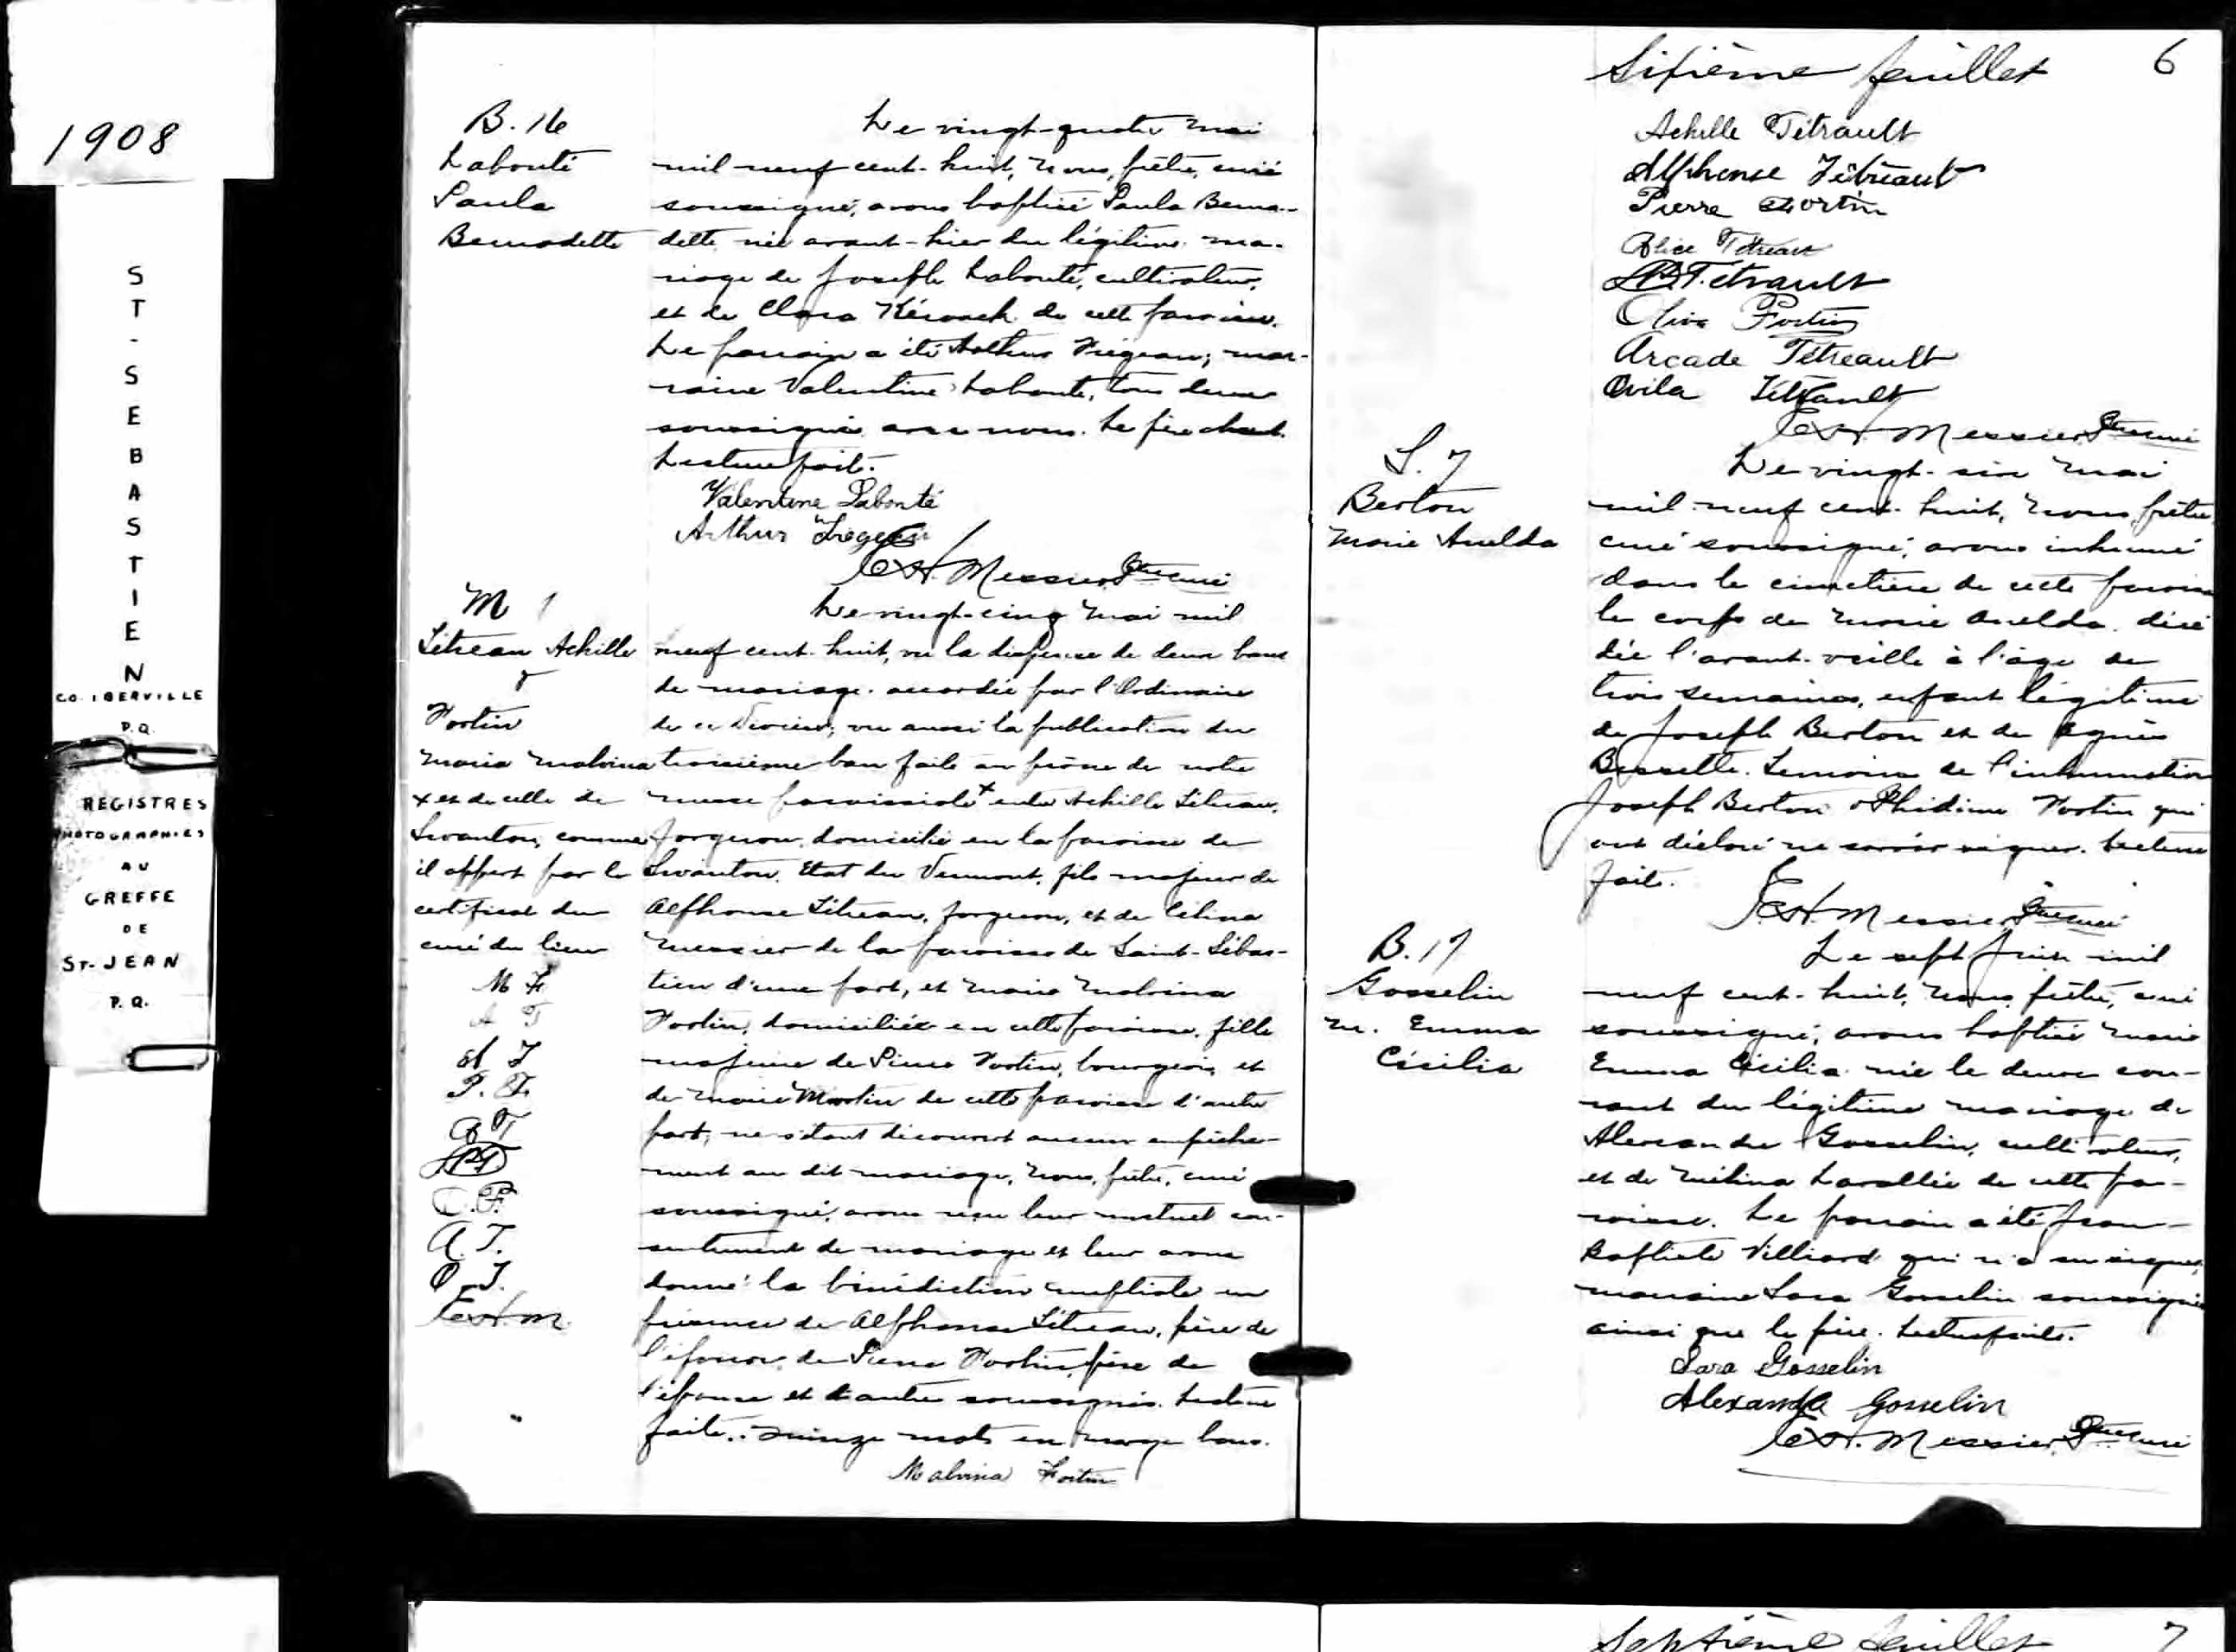 1908
ST-SEBASTIEN
CO. IBERVILLE
P.Q.
REGISTRES
PHOTOGRAPHIES
AU
GREFFE
DE
ST-JEAN
P.Q.
B. 16
Labonté
Paula
Bernadette
Le vingt-quatre mai
mil neuf cent-huit, nous, prêtre, curé
soussigné, avons baptisé Paula Berna-
dette née avant-hier du légitime ma-
riage de Joseph Labonté, cultivateur,
et de Clara Kérouack de cette paroisse.
Le parrain a été Arthur Trégeau; mar-
raine Valentine Labonté, tous deux
soussignés avec nous. Le père absent.
Lecture faite.
Valentine Labonté
Arthur
J.A. Messier Ptre curé
M 1
Tétreau Achille
&
Fortin
Marie Malvina
x et de celle de
Swanton, comme
il appert par le
certificat du
curé du lieu
M F
A T
A T
P. F.
A T
O. F.
A. T.
O. T.
Le vingt-cinq mai mil
neuf cent-huit, vu la dispense de deux bans
de mariage accordée par l'Ordinaire
de ce diocèse; vu aussi la publication du
troisième ban faite au prône de notre
messe paroissiale x entre Achille Tétreau,
forgeron, domicilié en la paroisse de
Swanton, Etat du Vermont, fils majeur de
Alphonse Tétreau, forgeron, et de Célina
Messier de la paroisse de Saint-Sébas-
tien d'une part, et Marie Malvina
Fortin, domiciliée en cette paroisse, fille
majeure de Pierre Fortin, bourgeois, et
de Marie Martin de cette paroisse d'autre
part; ne s'étant découvert aucun empêche-
ment au dit mariage, nous, prêtre, curé
soussigné, avons reçu leur mutuel con-
sentement de mariage et leur avons
donné la bénédiction nuptiale en
présence de Alphonse Tétreau, père de
l'époux, de Pierre Fortin, père de
l'épouse et d'autres soussignés. Lecture
faite. Quinze mots en marge bons.
Malvina Fortin
Sixième feuillet 6
Achille Tétrault
Alphonse Tétreault
Pierre Fortin
Alice Tétreau
Tétrault
Oliva Fortin
Arcade Tétreault
Ovila Tétrault
J.A. Messier Ptre curé
S. 7
Berton
Marie Anelda
Le vingt-six mai
mil-neuf cent-huit, nous, prêtre
curé soussigné, avons inhumé
dans le cimetière de cette paroisse
le corps de Marie Anelda décé-
dée l'avant-veille à l'âge de
trois semaines, enfant légitime
de Joseph Berton et de Agnès
Bessette. Témoins de l'inhumation
Joseph Berton & Phidime Fortin qui
ont déclaré ne savoir signer. Lecture
faite.
J.A. Messier Ptre curé
B. 17
Gosselin
M. Emma
Cécilia
Le sept juin mil
neuf cent-huit, nous, prêtre, curé
soussigné, avons baptisé Marie
Emma Cécilia née le deux cou-
rant du légitime mariage de
Alexandre Gosselin, cultivateur,
et de Mélina Lavallée de cette pa-
roisse. Le parrain a été Jean-
Baptiste Villiard qui n'a su signer,
marraine Sara Gosselin soussignée
ainsi que le père. Lecture faite.
Sara Gosselin
Alexandre Gosselin
J.A. Messier Ptre curé
Septième feuillet 7